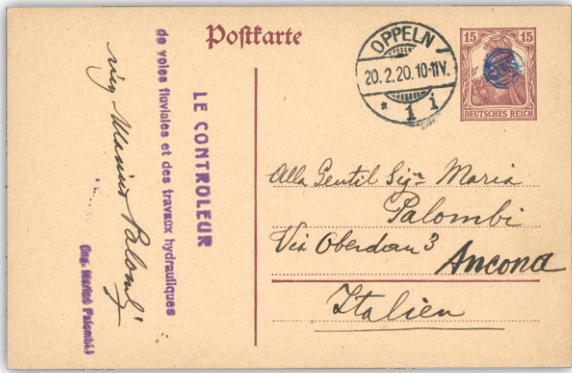 Postkarte
OPPELN
20.2.20.10-11V.
* 1 i
15 15
DEUTSCHES REICH
LE CONTROLEUR
de voies fluviales et des travaux hydrauliques
Marino Palombi
(Ing. Marino Palombi)
Alla Gentil Sig.ra Maria
Palombi
Via Oberdan 3
Ancona
Italien